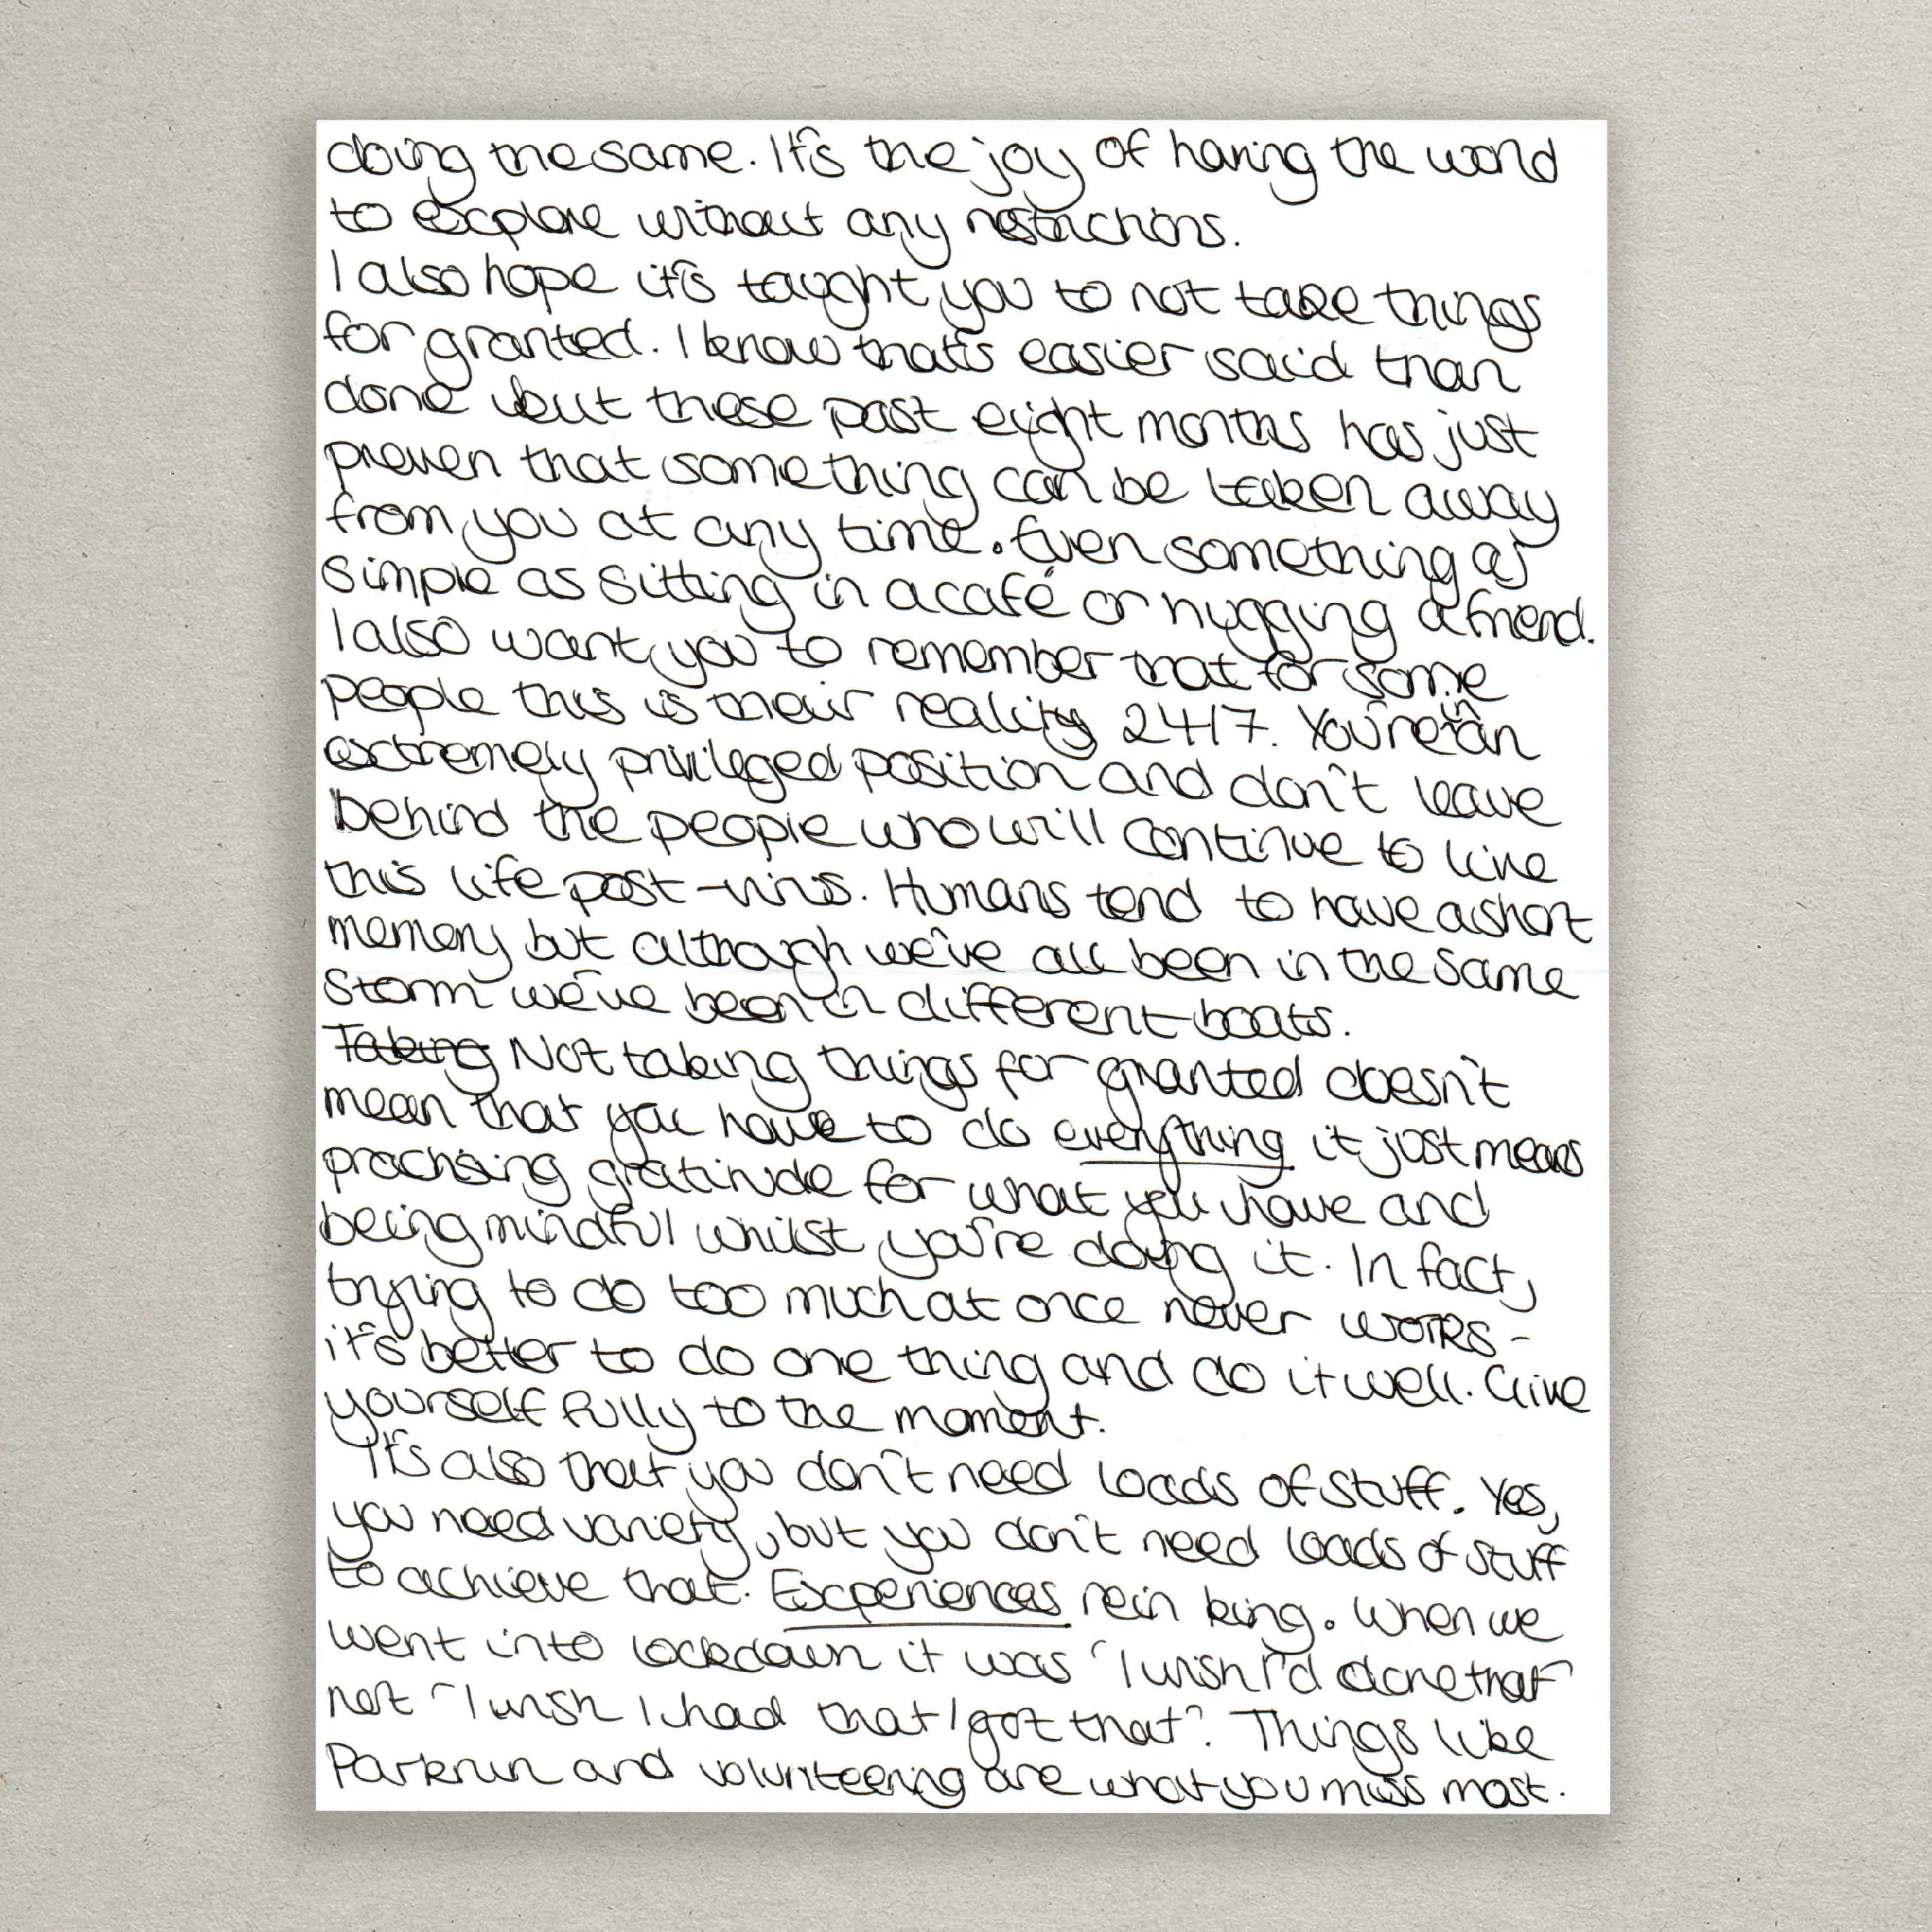 doing the same. It's the joy of having the world
to explore without any restrictions.
I also hope it's taught you to not take things
for granted. I know that's easier said than
done but these past eight months has just
proven that something can be taken away
from you at any time. Even something as
simple as sitting in a café or hugging a friend.
I also want you to remember that for some
people this is their reality 24/7. You're in an
extremely privileged position and don't leave
behind the people who will continue to live
this life post-virus. Humans tend to have a short
memory but although we've all been in the same
storm we've been in different boats.
Taking Not taking things for granted doesn't
mean that you have to do everything it just means
practising gratitude for what you have and
being mindful whilst you're doing it. In fact,
trying to do too much at once never works -
it's better to do one thing and do it well. Give
yourself fully to the moment.
It's also that you don't need loads of stuff. Yes,
you need variety, but you don't need loads of stuff
to achieve that. Experiences rein king. When we
went into lockdown it was 'I wish I'd done that'
not 'I wish I had that/got that'. Things like
Parkrun and volunteering are what you miss most.